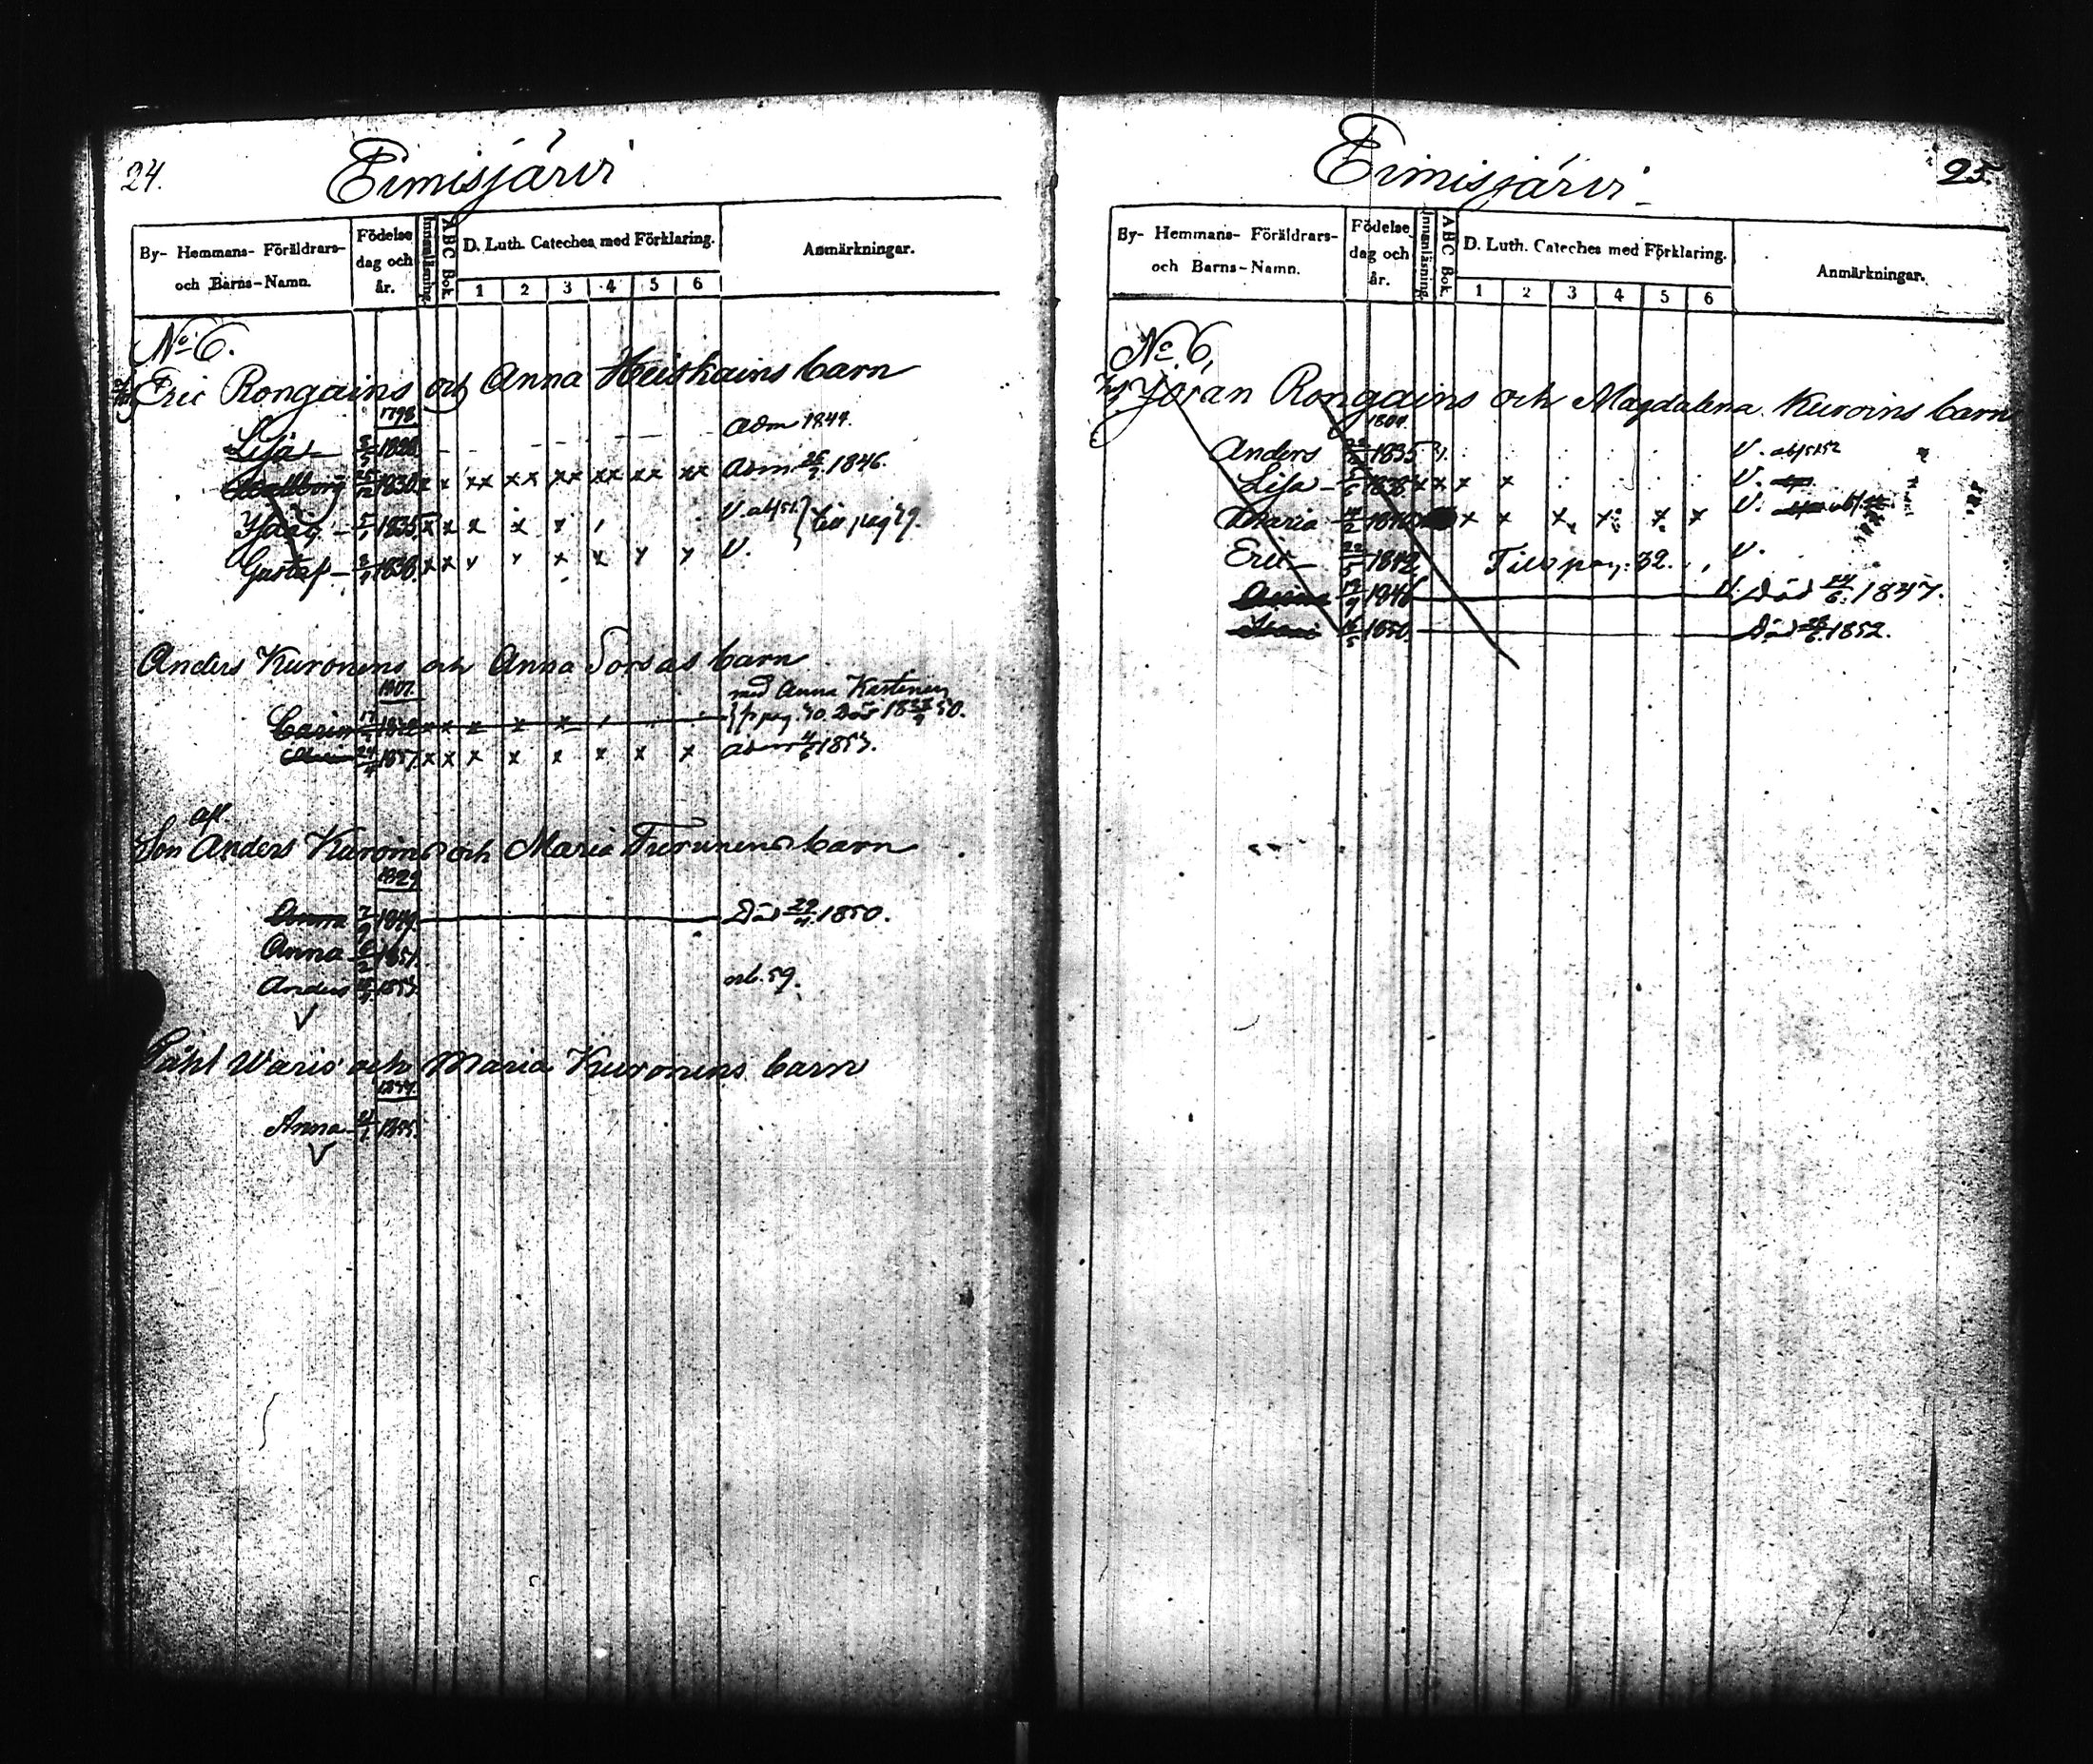 24.
Eimisjärvi
By- Hemmans- Föräldrars- och Barns-Namn.
Födelse dag och år.
Innanläsning.
ABC Bok.
D. Luth. Cateches med Förklaring.
1 2 3 4 5 6
Anmärkningar.
No 6.
Eric Rongains och Anna Heiskains barn
1798
Lisa 1828 adm 1844.
Wallborg 25/12 1830 x x xx xx xx xx xx xx adm 1846.
1835 x x x x x V. till pag 79.
Gustaf 1838 x x x x x x x x V.
Anders Kuronens och Anna Sorsas barn
1807.
med Anna Kastinen
Carin x x x x x pag. 70. Död 50.
24/4 x x x x x x x x adm 1853.
afl.
Son Anders Kuroins och Maria Turunens barn
1829
Anna 1849. Död 29/4 1850.
Anna 1851.
Anders 1853. utb. 59.
V
Påhl Waris och Maria Kuronens barn
Anna 1855.
V
25.
Eimisjärvi
By- Hemmans- Föräldrars- och Barns-Namn.
Födelse dag och år.
Innanläsning.
ABC Bok.
D. Luth. Cateches med Förklaring.
1 2 3 4 5 6
Anmärkningar.
No 6.
Jöran Rongains och Magdalena Kuroins barn
1809.
Anders 1835 V.
Lisa 1838 x x x x V.
Maria 1840 x x x x x x V.
Eric 1842 Till pag: 32. V.
1846 V Död 24/6 1847.
1850. Död 1852.